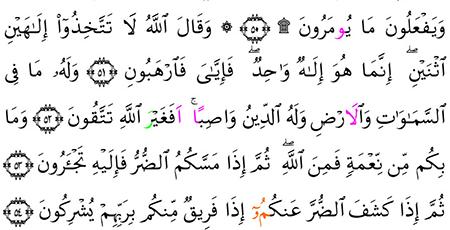 وَيَفْعَلُونَ مَا يُومَرُونَ ۩ ﴿٥٠﴾ ۞ وَقَالَ ٱللَّهُ لَا تَتَّخِذُوٓا۟ إِلَٰهَيْنِ
ٱثْنَيْنِ ۖ إِنَّمَا هُوَ إِلَٰهٌ وَاحِدٌ ۖ فَإِيَّٰىَ فَٱرْهَبُونِ ﴿٥١﴾ وَلَهُۥ مَا فِى
ٱلسَّمَٰوَاتِ وَٱلَارْضِ وَلَهُ ٱلدِّينُ وَاصِبًا ۚ اَفَغَيْرَ ٱللَّهِ تَتَّقُونَ ﴿٥٢﴾ وَمَا
بِكُم مِّن نِّعْمَةٍ فَمِنَ ٱللَّهِ ۖ ثُمَّ إِذَا مَسَّكُمُ ٱلضُّرُّ فَإِلَيْهِ تَجْـَٔرُونَ ﴿٥٣﴾
ثُمَّ إِذَا كَشَفَ ٱلضُّرَّ عَنكُمُۥٓ إِذَا فَرِيقٌ مِّنكُم بِرَبِّهِمْ يُشْرِكُونَ ﴿٥٤﴾